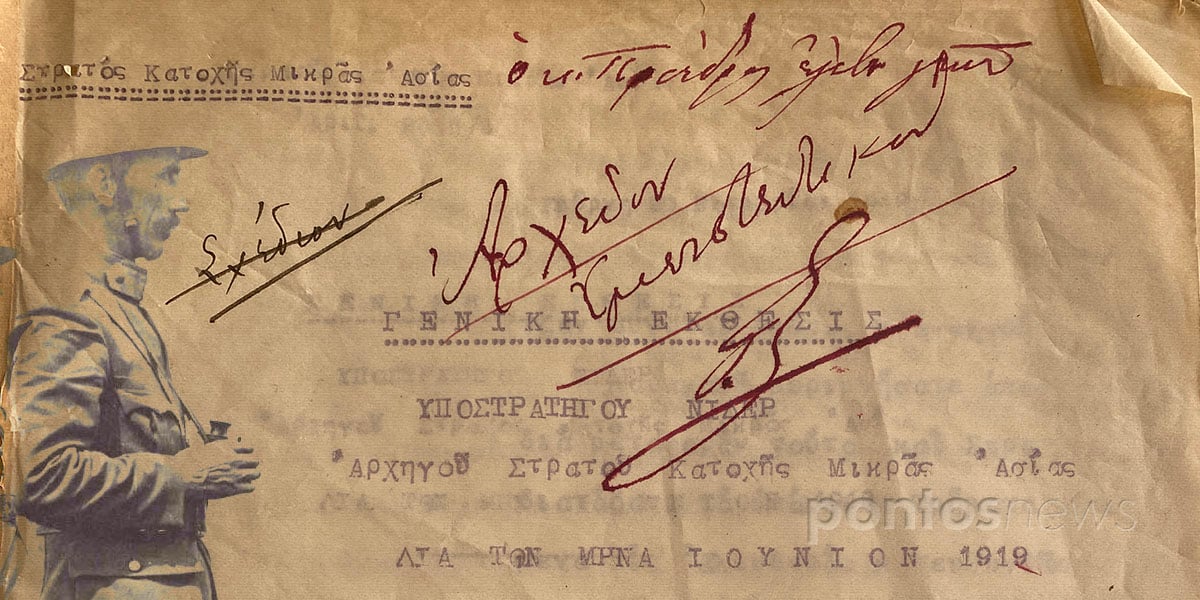 Στρατός Κατοχῆς Μικρᾶς Ἀσίας
ὁ κ. Πρόεδρος ἔλαβε
Σχέδιον
Ἀρχεῖον
ΓΕΝΙΚΗ ΕΚΘΕΣΙΣ
ΥΠΟΣΤΡΑΤΗΓΟΥ ΝΙΔΕΡ
Ἀρχηγοῦ Στρατοῦ Κατοχῆς Μικρᾶς Ἀσίας
ΔΙΑ ΤΟΝ ΜΗΝΑ ΙΟΥΝΙΟΝ 1919
pontosnews